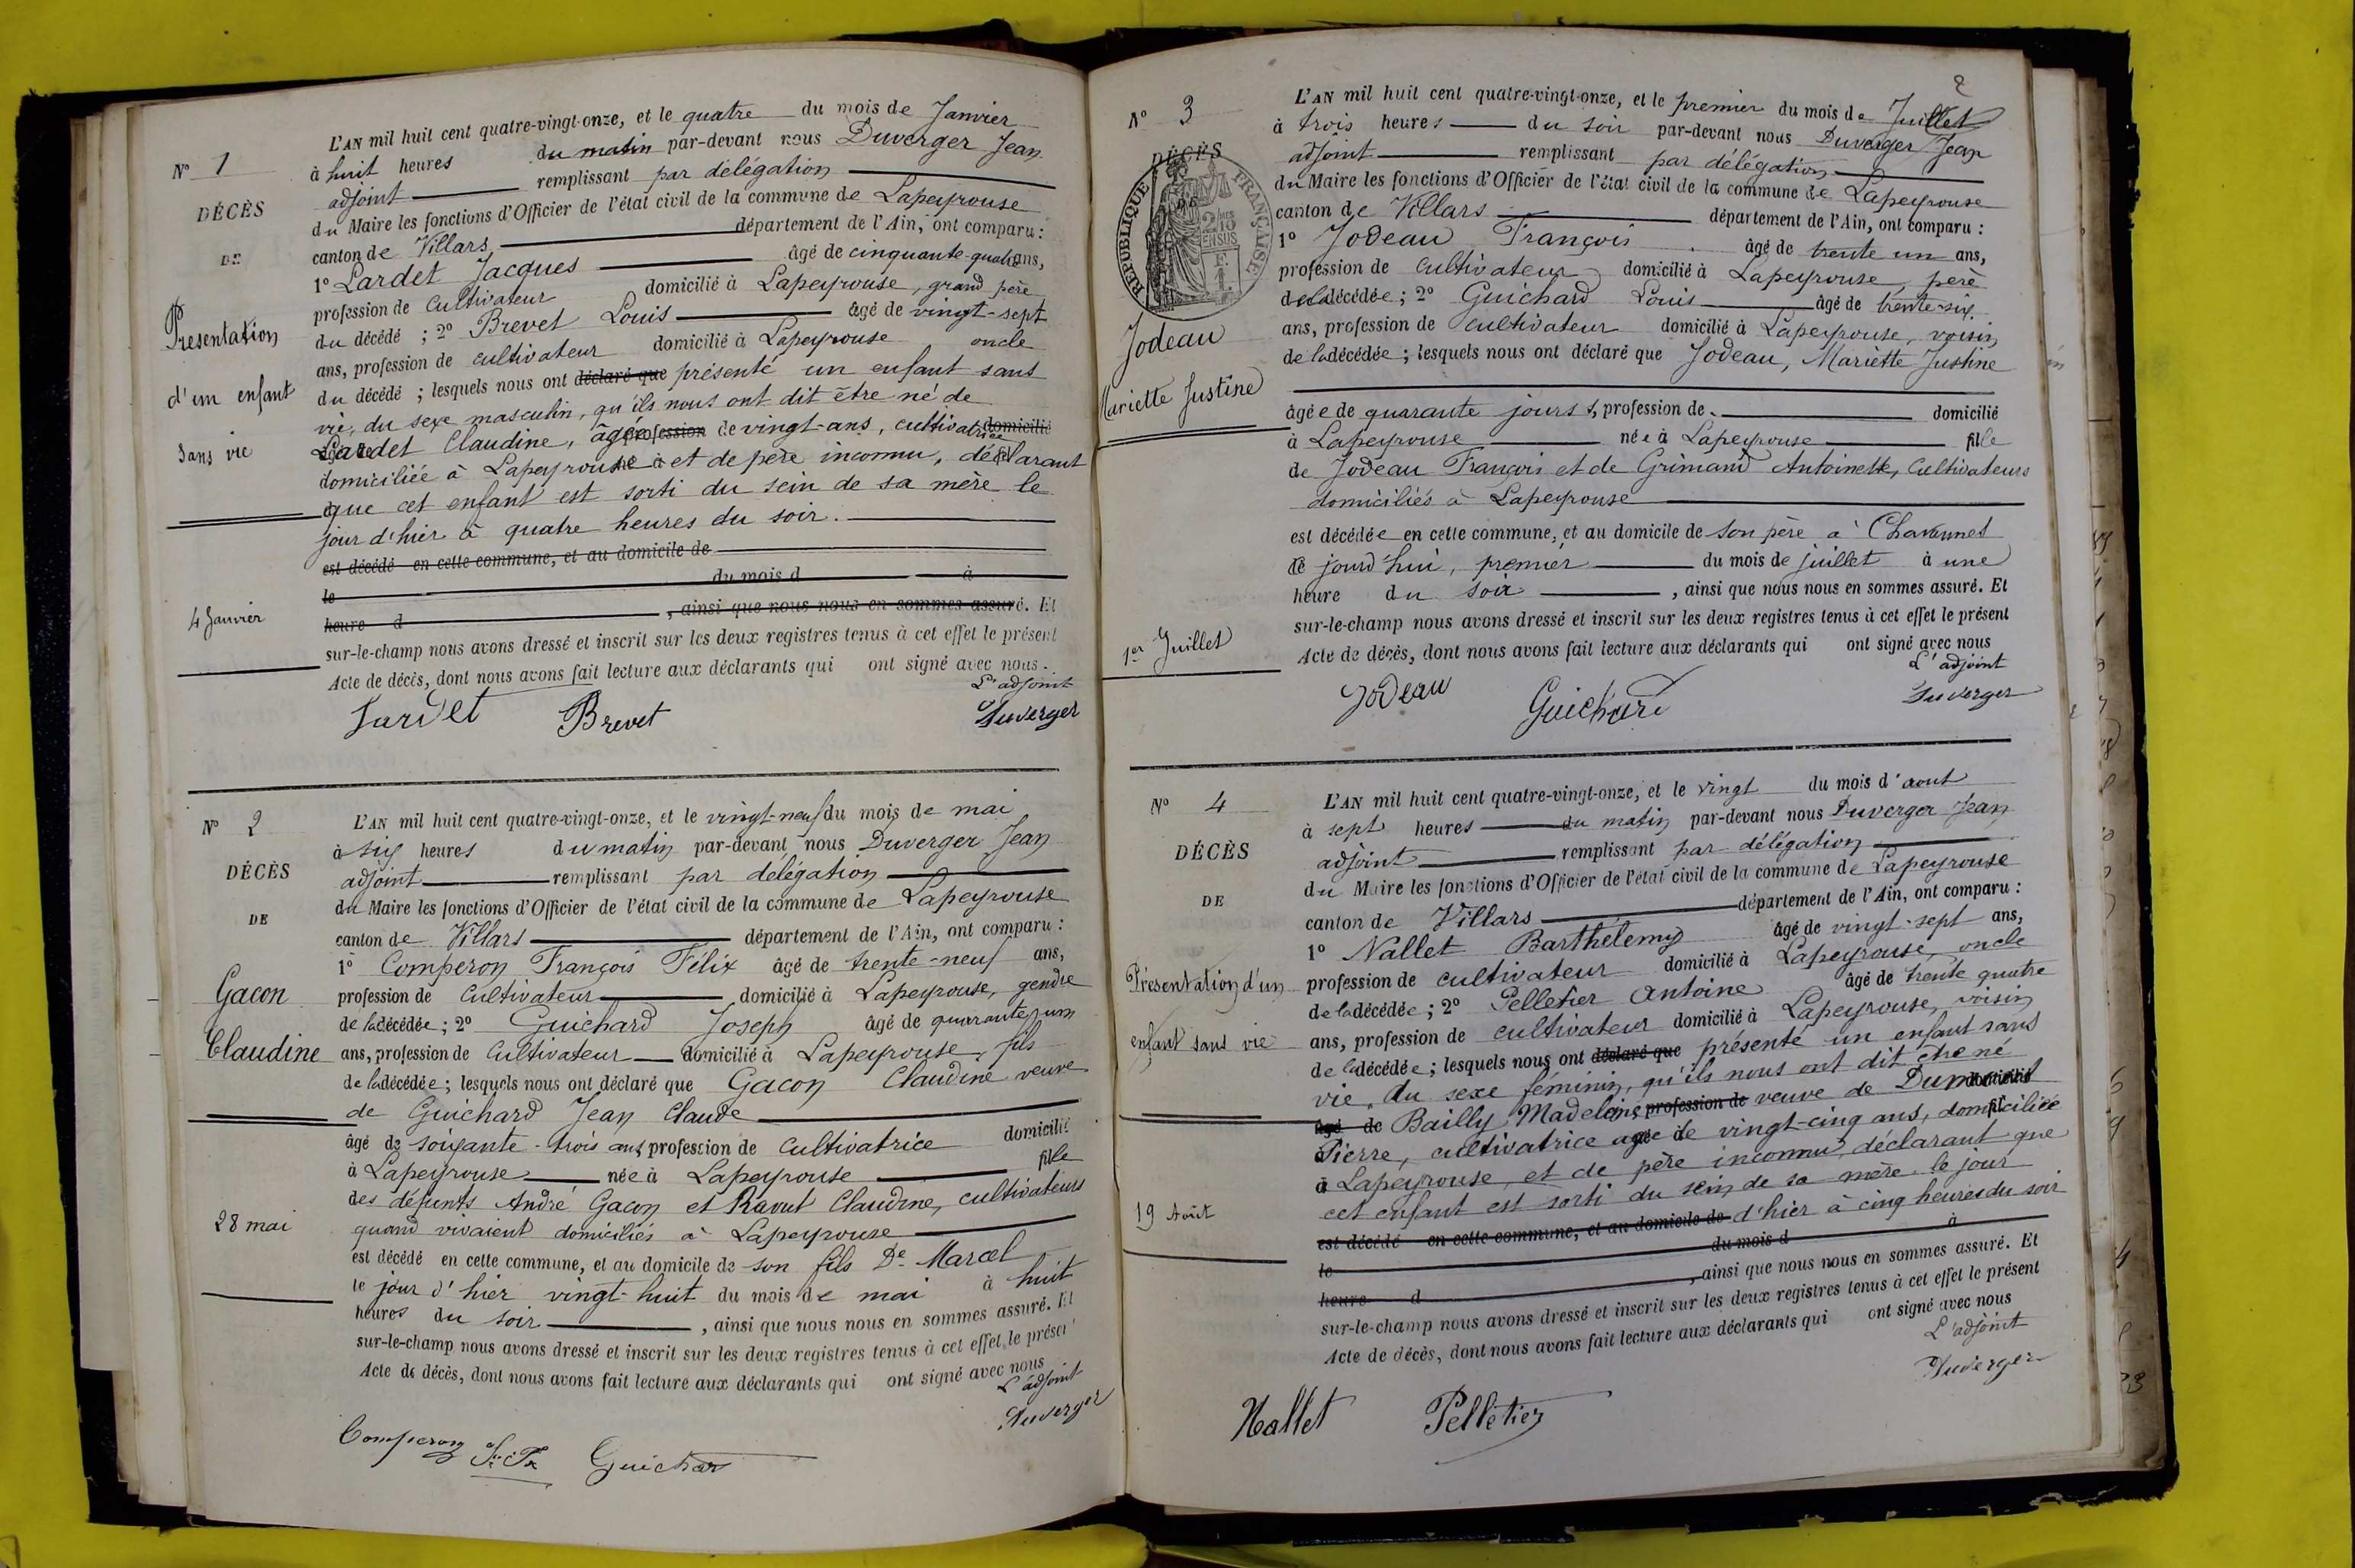 N° 1
DÉCÈS
DE
Présentation
d'un enfant
sans vie
4 Janvier
L'AN mil huit cent quatre-vingt-onze, et le quatre du mois de Janvier
à huit heures du matin par-devant nous Duverger Jean
adjoint remplissant par délégation
du Maire les fonctions d'Officier de l'état civil de la commune de Lapeyrouse
canton de Villars département de l'Ain, ont comparu :
1° Lardet Jacques âgé de cinquante-quatre ans,
profession de cultivateur domicilié à Lapeyrouse, grand père
du décédé ; 2° Brevet Louis âgé de vingt-sept
ans, profession de cultivateur domicilié à Lapeyrouse oncle
du décédé ; lesquels nous ont déclaré que présenté un enfant sans
vie, du sexe masculin, qu'ils nous ont dit être né de
Lardet Claudine, âgée profession de vingt-ans, cultivatrice domicilié
domiciliée à Lapeyrouse et de père inconnu, déclarant
que cet enfant est sorti du sein de sa mère le
jour d'hier à quatre heures du soir.
est décédé en cette commune, et au domicile de
le du mois d à
heure d , ainsi que nous nous en sommes assuré. Et
sur-le-champ nous avons dressé et inscrit sur les deux registres tenus à cet effet le présent
Acte de décès, dont nous avons fait lecture aux déclarants qui ont signé avec nous.
L'adjoint
Lardet Brevet Duverger
N° 2
DÉCÈS
DE
Gacon
Claudine
28 mai
L'AN mil huit cent quatre-vingt-onze, et le vingt-neuf du mois de mai
à six heures du matin par-devant nous Duverger Jean
adjoint remplissant par délégation
du Maire les fonctions d'Officier de l'état civil de la commune de Lapeyrouse
canton de Villars département de l'Ain, ont comparu :
1° Comperon François Félix âgé de trente-neuf ans,
profession de cultivateur domicilié à Lapeyrouse, gendre
de la décédée ; 2° Guichard Joseph âgé de quarante-un
ans, profession de cultivateur domicilié à Lapeyrouse, fils
de la décédée ; lesquels nous ont déclaré que Gacon Claudine veuve
de Guichard Jean Claude
âgé de soixante-trois ans profession de cultivatrice domicilié
à Lapeyrouse née à Lapeyrouse fille
des défunts André Gacon et Ravut Claudine, cultivateurs
quand vivaient domiciliés à Lapeyrouse
est décédé en cette commune, et au domicile de son fils De Marcel
le jour d'hier vingt-huit du mois de mai à huit
heures du soir , ainsi que nous nous en sommes assuré. Et
sur-le-champ nous avons dressé et inscrit sur les deux registres tenus à cet effet le présent
Acte de décès, dont nous avons fait lecture aux déclarants qui ont signé avec nous
L'adjoint
Duverger
Comperon Guichar
2
N° 3
DÉCÈS
DE
RÉPUBLIQUE FRANÇAISE
Jodeau
Mariette Justine
1er Juillet
L'AN mil huit cent quatre-vingt-onze, et le premier du mois de Juillet
à trois heures du soir par-devant nous Duverger Jean
adjoint remplissant par délégation
du Maire les fonctions d'Officier de l'état civil de la commune de Lapeyrouse
canton de Villars département de l'Ain, ont comparu :
1° Jodeau François âgé de trente un ans,
profession de cultivateur domicilié à Lapeyrouse, père
de la décédée ; 2° Guichard Louis âgé de trente-six
ans, profession de cultivateur domicilié à Lapeyrouse, voisin
de la décédée ; lesquels nous ont déclaré que Jodeau, Mariette Justine
âgée de quarante jours, profession de domicilié
à Lapeyrouse née à Lapeyrouse fille
de Jodeau François et de Grimand Antoinette, cultivateurs
domiciliés à Lapeyrouse
est décédée en cette commune, et au domicile de son père à Chavannes
ce jourd'hui, premier du mois de juillet à une
heure du soir , ainsi que nous nous en sommes assuré. Et
sur-le-champ nous avons dressé et inscrit sur les deux registres tenus à cet effet le présent
Acte de décès, dont nous avons fait lecture aux déclarants qui ont signé avec nous
L'adjoint
Jodeau Guichard Duverger
N° 4
DÉCÈS
DE
Présentation d'un
enfant sans vie
19 Août
L'AN mil huit cent quatre-vingt-onze, et le vingt du mois d'aout
à sept heures du matin par-devant nous Duverger Jean
adjoint remplissant par délégation
du Maire les fonctions d'Officier de l'état civil de la commune de Lapeyrouse
canton de Villars département de l'Ain, ont comparu :
1° Nallet Barthélemy âgé de vingt-sept ans,
profession de cultivateur domicilié à Lapeyrouse, oncle
de la décédée ; 2° Pelletier Antoine âgé de trente quatre
ans, profession de cultivateur domicilié à Lapeyrouse, voisin
de la décédée ; lesquels nous ont déclaré que présenté un enfant sans
vie, du sexe féminin, qu'ils nous ont dit être né
âgé de Bailly Madeleine profession de veuve de
Pierre, cultivatrice agée de vingt-cinq ans, domiciliée
à Lapeyrouse, et de père inconnu, déclarant que
cet enfant est sorti du sein de sa mère le jour
est décédé en cette commune, et au domicile de d'hier à cinq heures du soir.
le du mois d à
heure d , ainsi que nous nous en sommes assuré. Et
sur-le-champ nous avons dressé et inscrit sur les deux registres tenus à cet effet le présent
Acte de décès, dont nous avons fait lecture aux déclarants qui ont signé avec nous
L'adjoint
Duverger
Nallet Pelletier